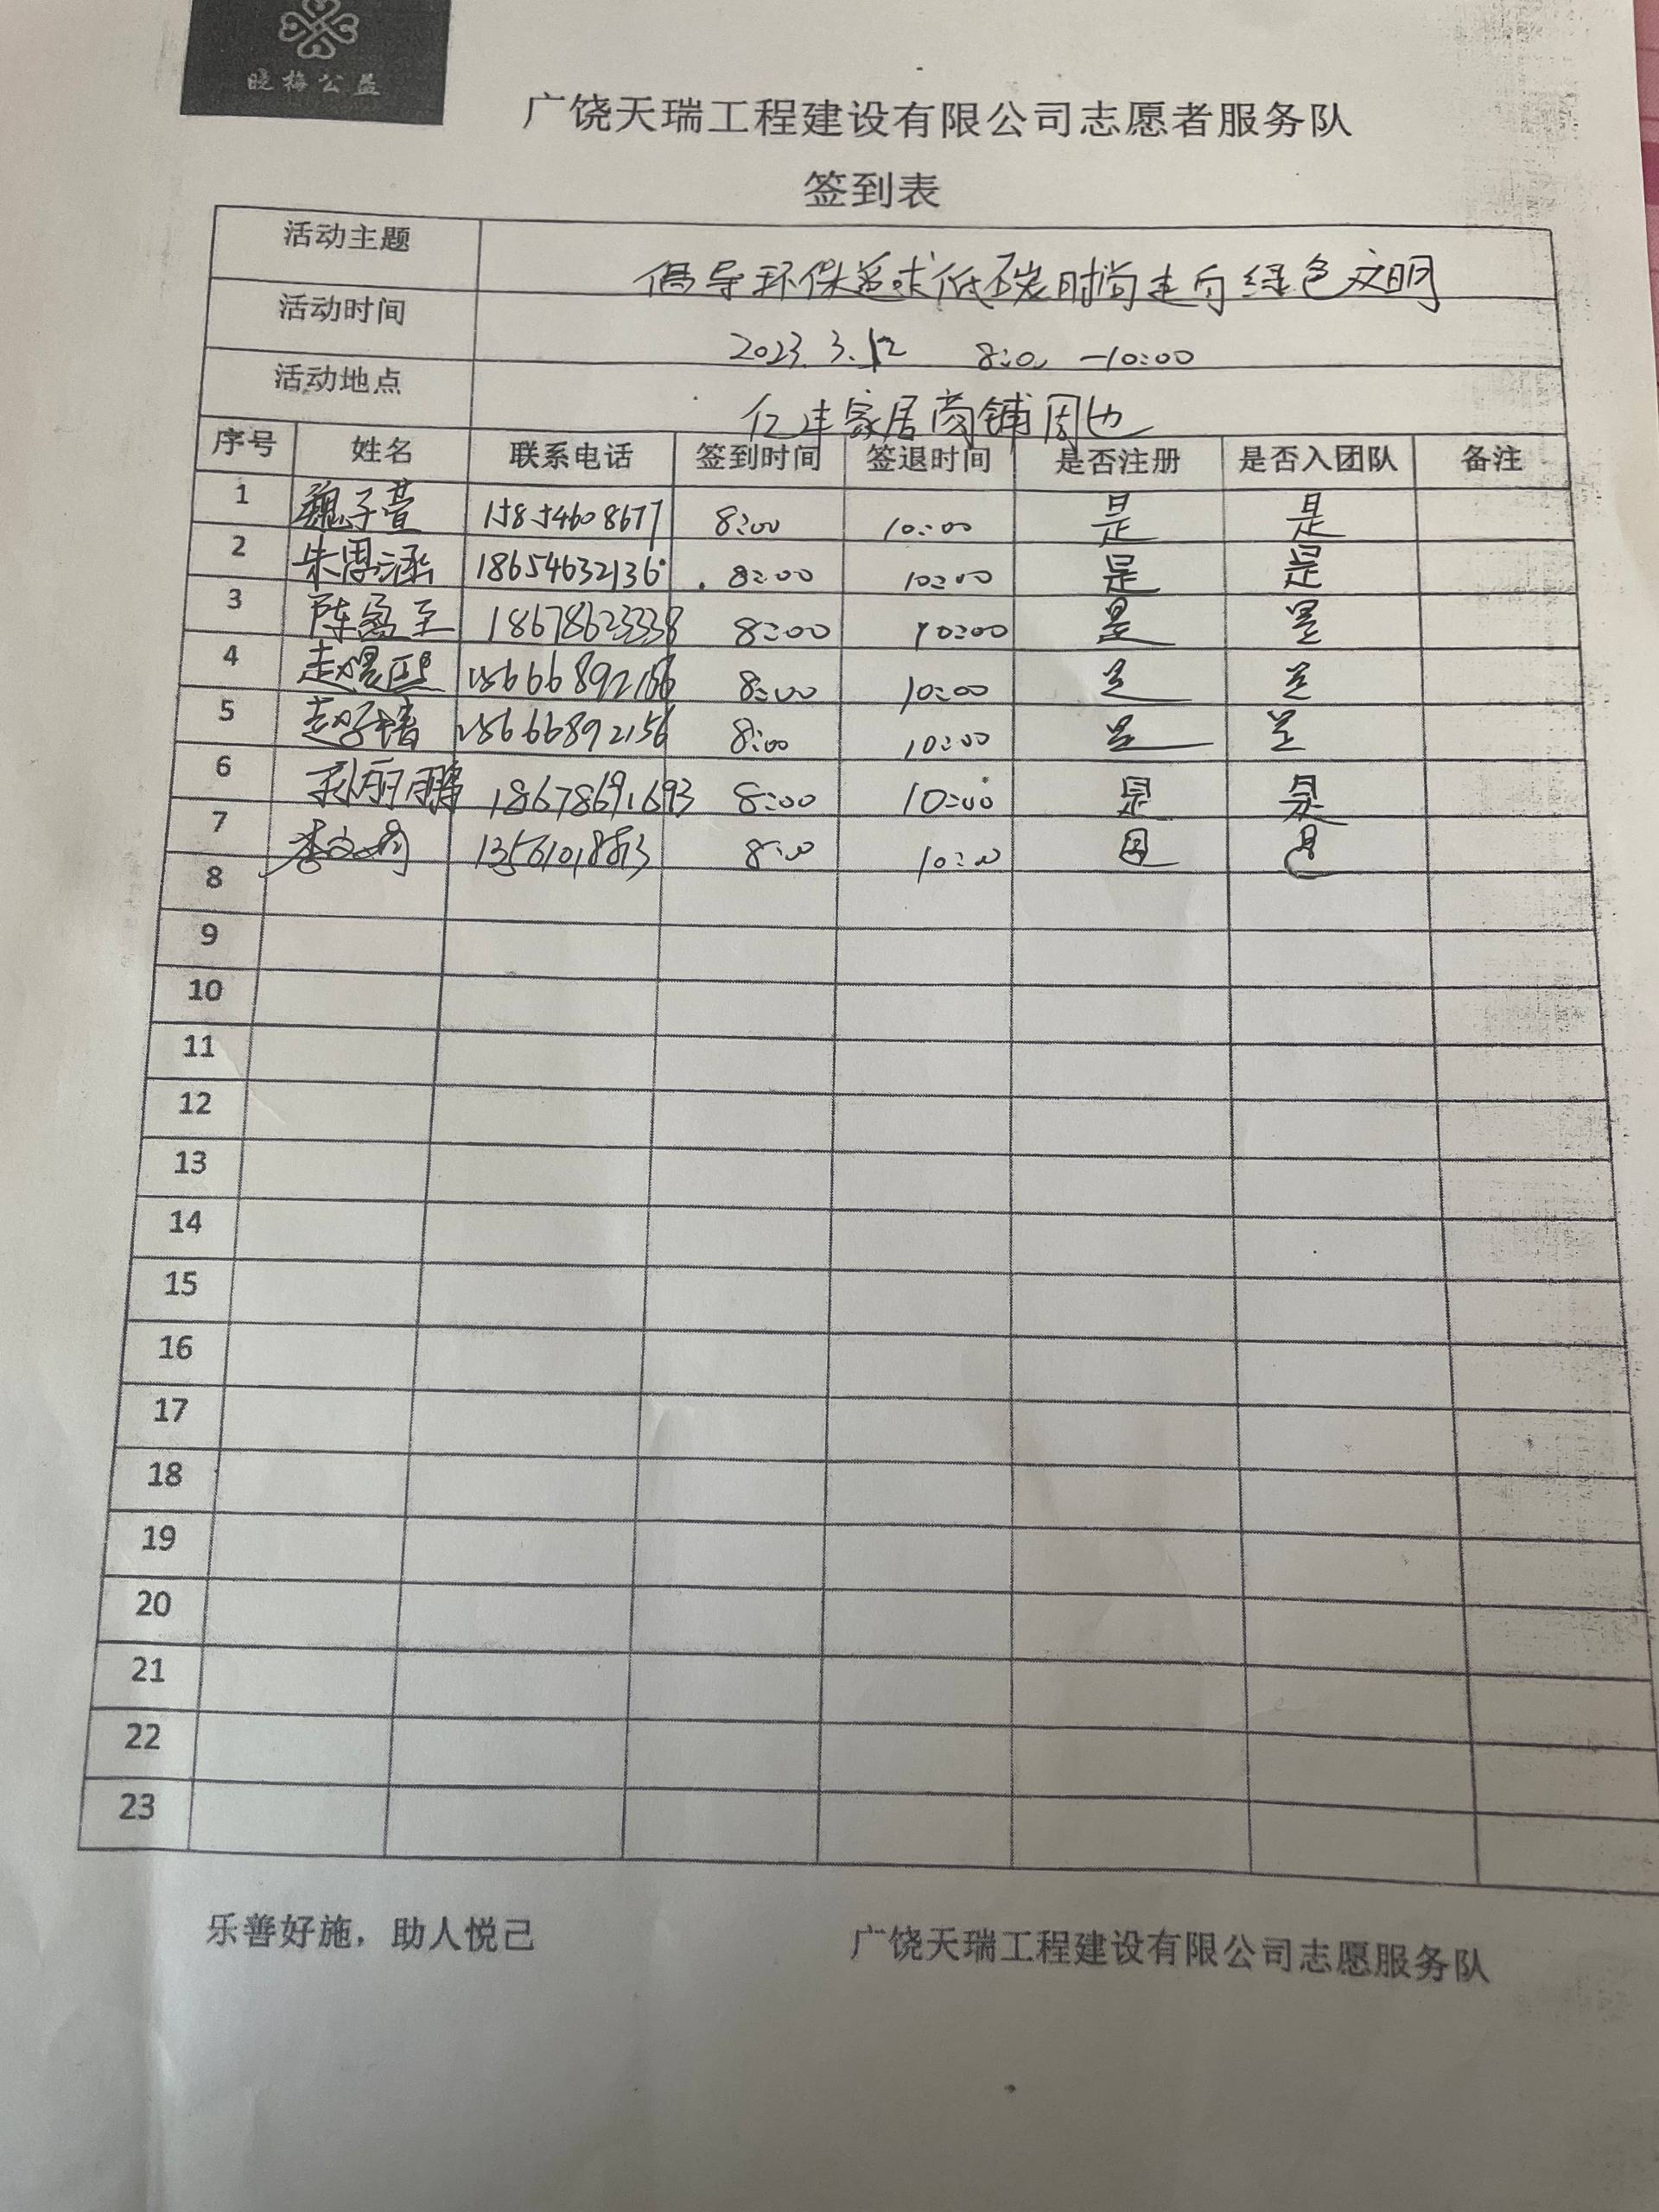 晓梅公益
广饶天瑞工程建设有限公司志愿者服务队
签到表
活动主题 倡导环保追求低碳时尚走向绿色文明
活动时间 2023.3.12 8:00 -10:00
活动地点 亿丰家居商铺周边
序号 姓名 联系电话 签到时间 签退时间 是否注册 是否入团队 备注
1 魏子萱 15854608677 8:00 10:00 是 是
2 朱思涵 18654632136 8:00 10:00 是 是
3 18678623338 8:00 10:00 是 是
4 15666892156 8:00 10:00 是 是
5 15666892156 8:00 10:00 是 是
6 孙丽鹏 18678691693 8:00 10:00 是 是
7 8:00 10:00 是 是
8
9
10
11
12
13
14
15
16
17
18
19
20
21
22
23
乐善好施，助人悦己 广饶天瑞工程建设有限公司志愿服务队